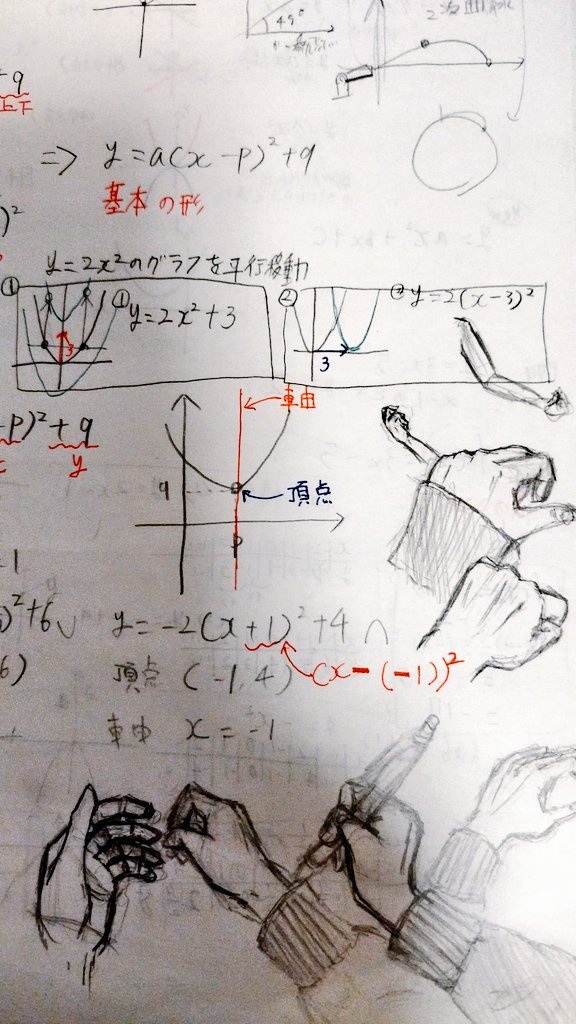 45°
2次曲線
+q
上下
=> y=a(x-p)²+q
)²
基本の形
y=2x²のグラフを平行移動
① ① y=2x²+3
3
② ② y=2(x-3)²
3
-p)²+q
y
軸
q
頂点
p
)²+6 ∪ y=-2(x+1)²+4 ∩
6) 頂点 (-1,4) (x-(-1))²
軸 x=-1